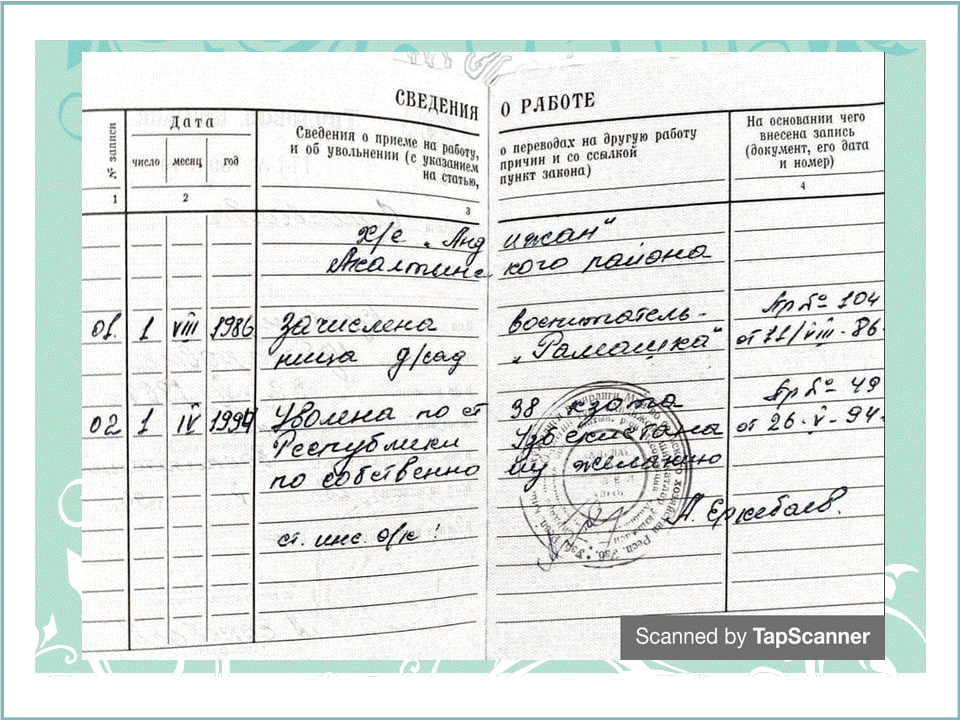 СВЕДЕНИЯ О РАБОТЕ
№ записи
Дата
число месяц год
Сведения о приеме на работу,
и об увольнении (с указанием
на статью,
о переводах на другую работу
причин и со ссылкой
пункт закона)
На основании чего
внесена запись
(документ, его дата
и номер)
1 2 3 4
х/с "Анд ижан"
Акалтынс кого района
01. 1 VIII 1986 Зачислена воспитатель- Пр № 104
ница д/сад "Рамашка" от 11/VIII-86.
02 1 IV 1994 Уволена по ст 38 кзота Пр № 49
Республики Узбекистана от 26-V-94
по собственно му желанию
ст. инс. о/к: А. Еркебаев.
Scanned by TapScanner